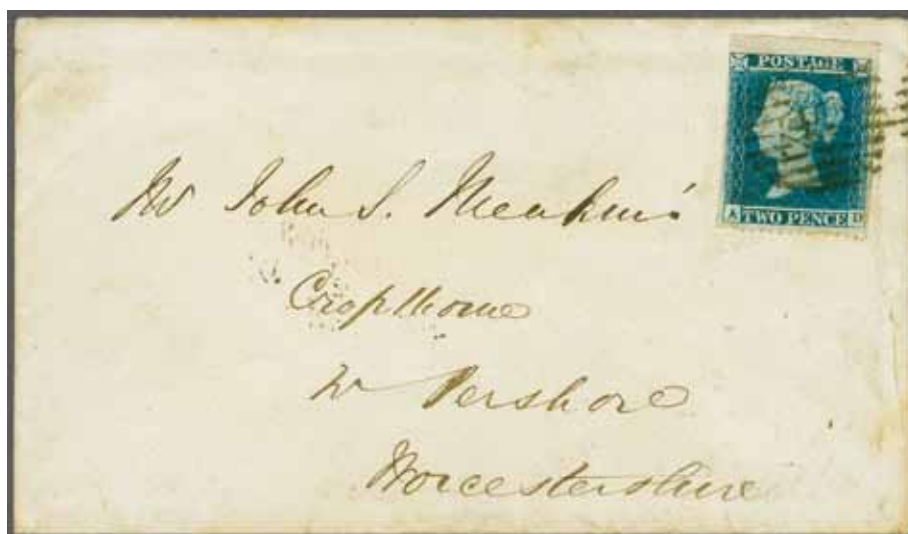 POSTAGE
A TWO PENCE D
Mr John S. Meakins
Cropthorne
Nr Pershore
Worcestershire